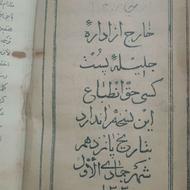 خارج از ادارهٔ
جلیلهٔ پست
کسی حق انطباع
این نسخه را ندارد
بتاریخ پانزدهم
شهر جمادی الاول